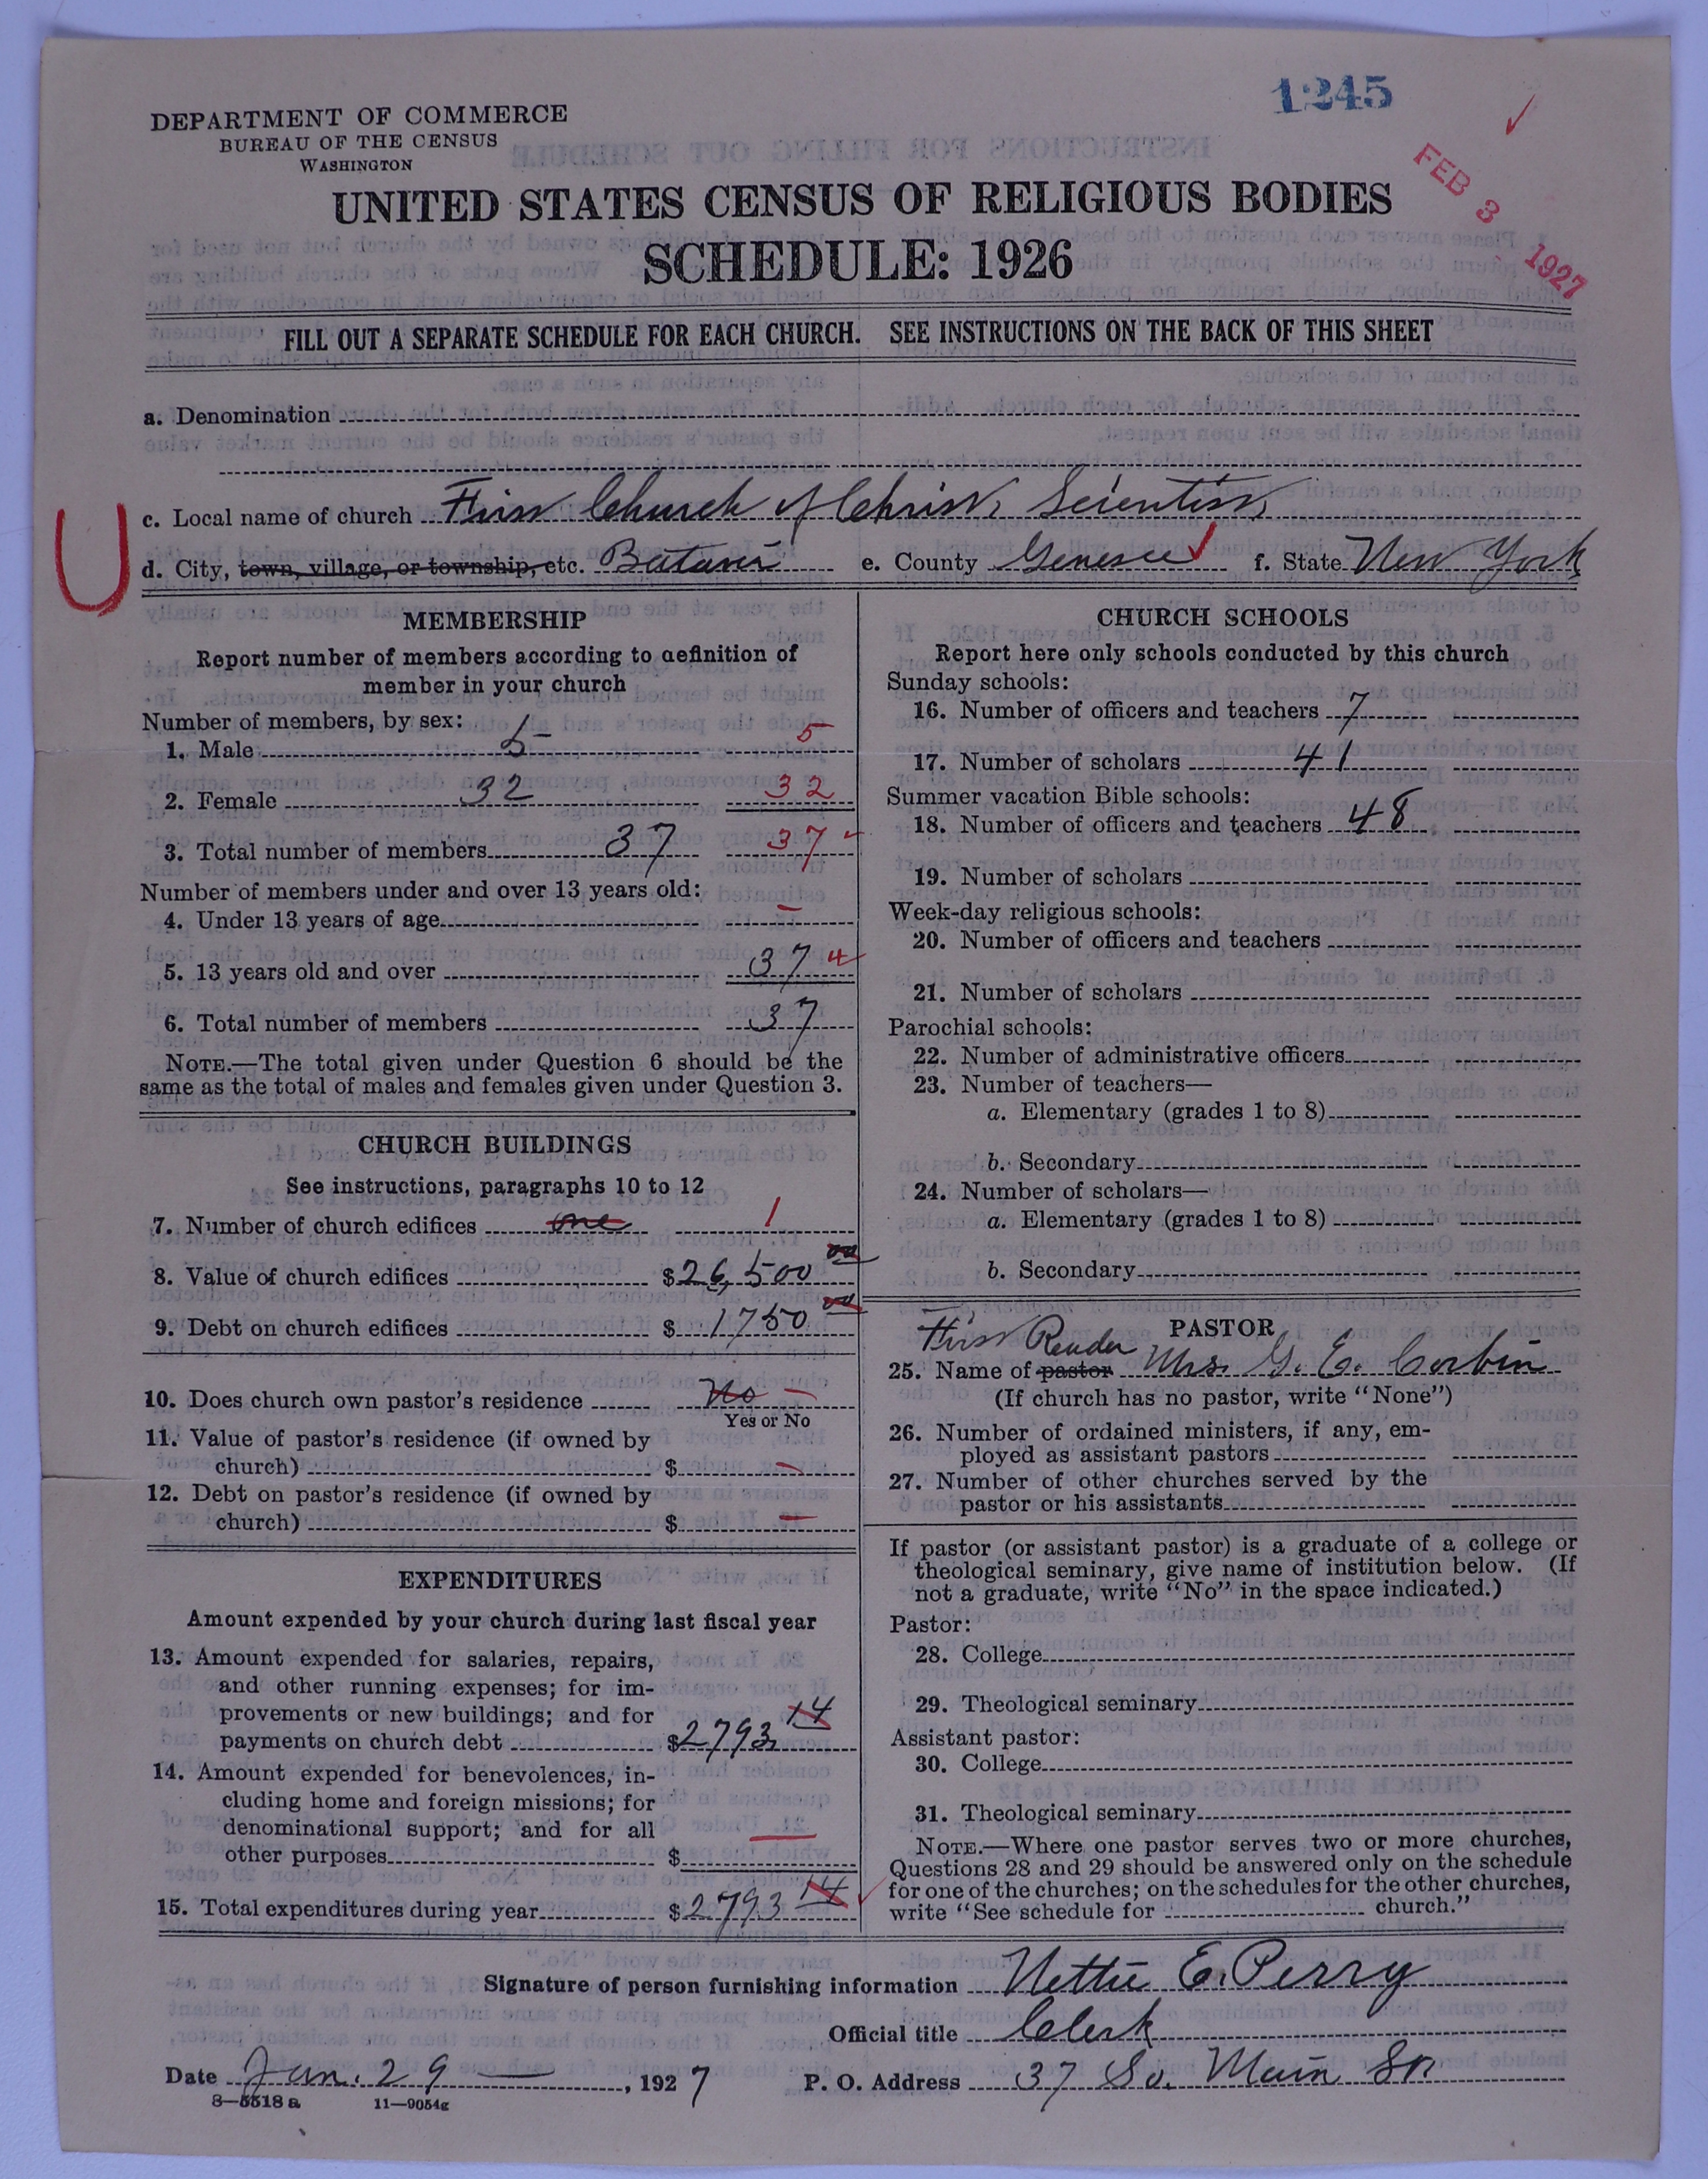 1245
DEPARTMENT OF COMMERCE
BUREAU OF THE CENSUS
WASHINGTON
FEB 3 1927
UNITED STATES CENSUS OF RELIGIOUS BODIES
SCHEDULE: 1926
FILL OUT A SEPARATE SCHEDULE FOR EACH CHURCH. SEE INSTRUCTIONS ON THE BACK OF THIS SHEET
a. Denomination
c. Local name of church First Church of Christ, Scientist,
d. City, town, village, or township, etc. Batavia e. County Genesee f. State New York
MEMBERSHIP
Report number of members according to definition of
member in your church
Number of members, by sex:
1. Male 5 5
2. Female 32 32
3. Total number of members 37 37
Number of members under and over 13 years old:
4. Under 13 years of age –
5. 13 years old and over 37
6. Total number of members 37
NOTE.—The total given under Question 6 should be the
same as the total of males and females given under Question 3.
CHURCH BUILDINGS
See instructions, paragraphs 10 to 12
7. Number of church edifices one 1
8. Value of church edifices $26,500 00
9. Debt on church edifices $ 1750 00
10. Does church own pastor's residence No –
Yes or No
11. Value of pastor's residence (if owned by
church) $ –
12. Debt on pastor's residence (if owned by
church) $ –
EXPENDITURES
Amount expended by your church during last fiscal year
13. Amount expended for salaries, repairs,
and other running expenses; for im-
provements or new buildings; and for
payments on church debt $2793 14
14. Amount expended for benevolences, in-
cluding home and foreign missions; for
denominational support; and for all
other purposes $ –
15. Total expenditures during year $2793 14
CHURCH SCHOOLS
Report here only schools conducted by this church
Sunday schools:
16. Number of officers and teachers 7
17. Number of scholars 41
Summer vacation Bible schools:
18. Number of officers and teachers 48
19. Number of scholars
Week-day religious schools:
20. Number of officers and teachers
21. Number of scholars
Parochial schools:
22. Number of administrative officers
23. Number of teachers—
a. Elementary (grades 1 to 8)
b. Secondary
24. Number of scholars—
a. Elementary (grades 1 to 8)
b. Secondary
PASTOR
First Reader
25. Name of pastor Mrs. G. E. Corbin
(If church has no pastor, write "None")
26. Number of ordained ministers, if any, em-
ployed as assistant pastors
27. Number of other churches served by the
pastor or his assistants
If pastor (or assistant pastor) is a graduate of a college or
theological seminary, give name of institution below. (If
not a graduate, write "No" in the space indicated.)
Pastor:
28. College
29. Theological seminary
Assistant pastor:
30. College
31. Theological seminary
NOTE.—Where one pastor serves two or more churches,
Questions 28 and 29 should be answered only on the schedule
for one of the churches; on the schedules for the other churches,
write "See schedule for church."
Signature of person furnishing information Nettie E. Perry
Official title Clerk
Date Jan. 29 — , 1927 P. O. Address 37 So. Main St
8—5518 a 11—9054g